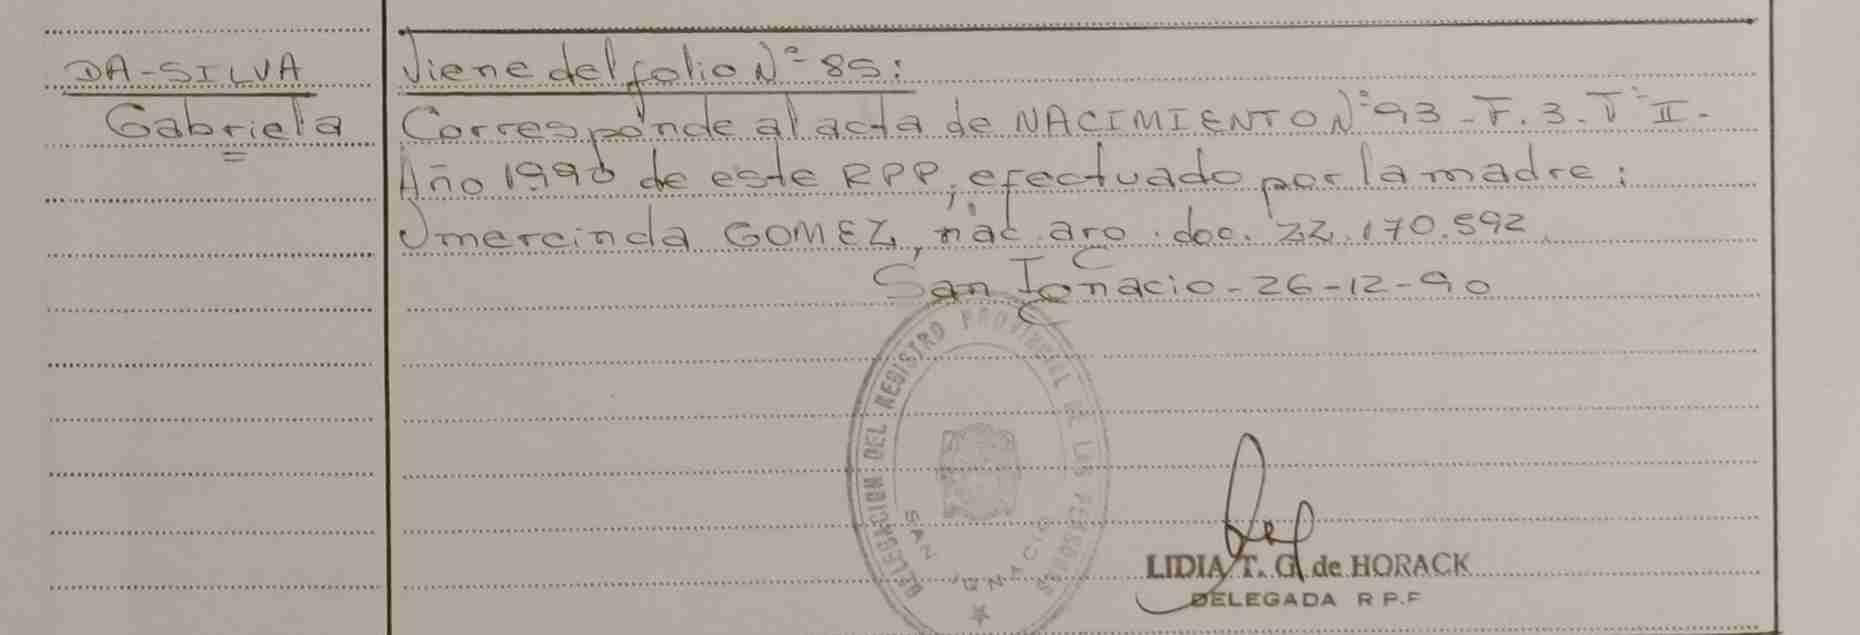 DA-SILVA
Gabriela
Viene del folio Nº 85:
Corresponde al acta de NACIMIENTO Nº 93 - F. 3. Tº II -
Año 1990 de este RPP, efectuado por la madre:
Jmercinda GOMEZ, nac. aro. doc. 22.170.592
San Ignacio - 26-12-90
DELEGACION DEL REGISTRO PROVINCIAL DE LAS PERSONAS
SAN IGNACIO
LIDIA T. G. de HORACK
DELEGADA R P.P